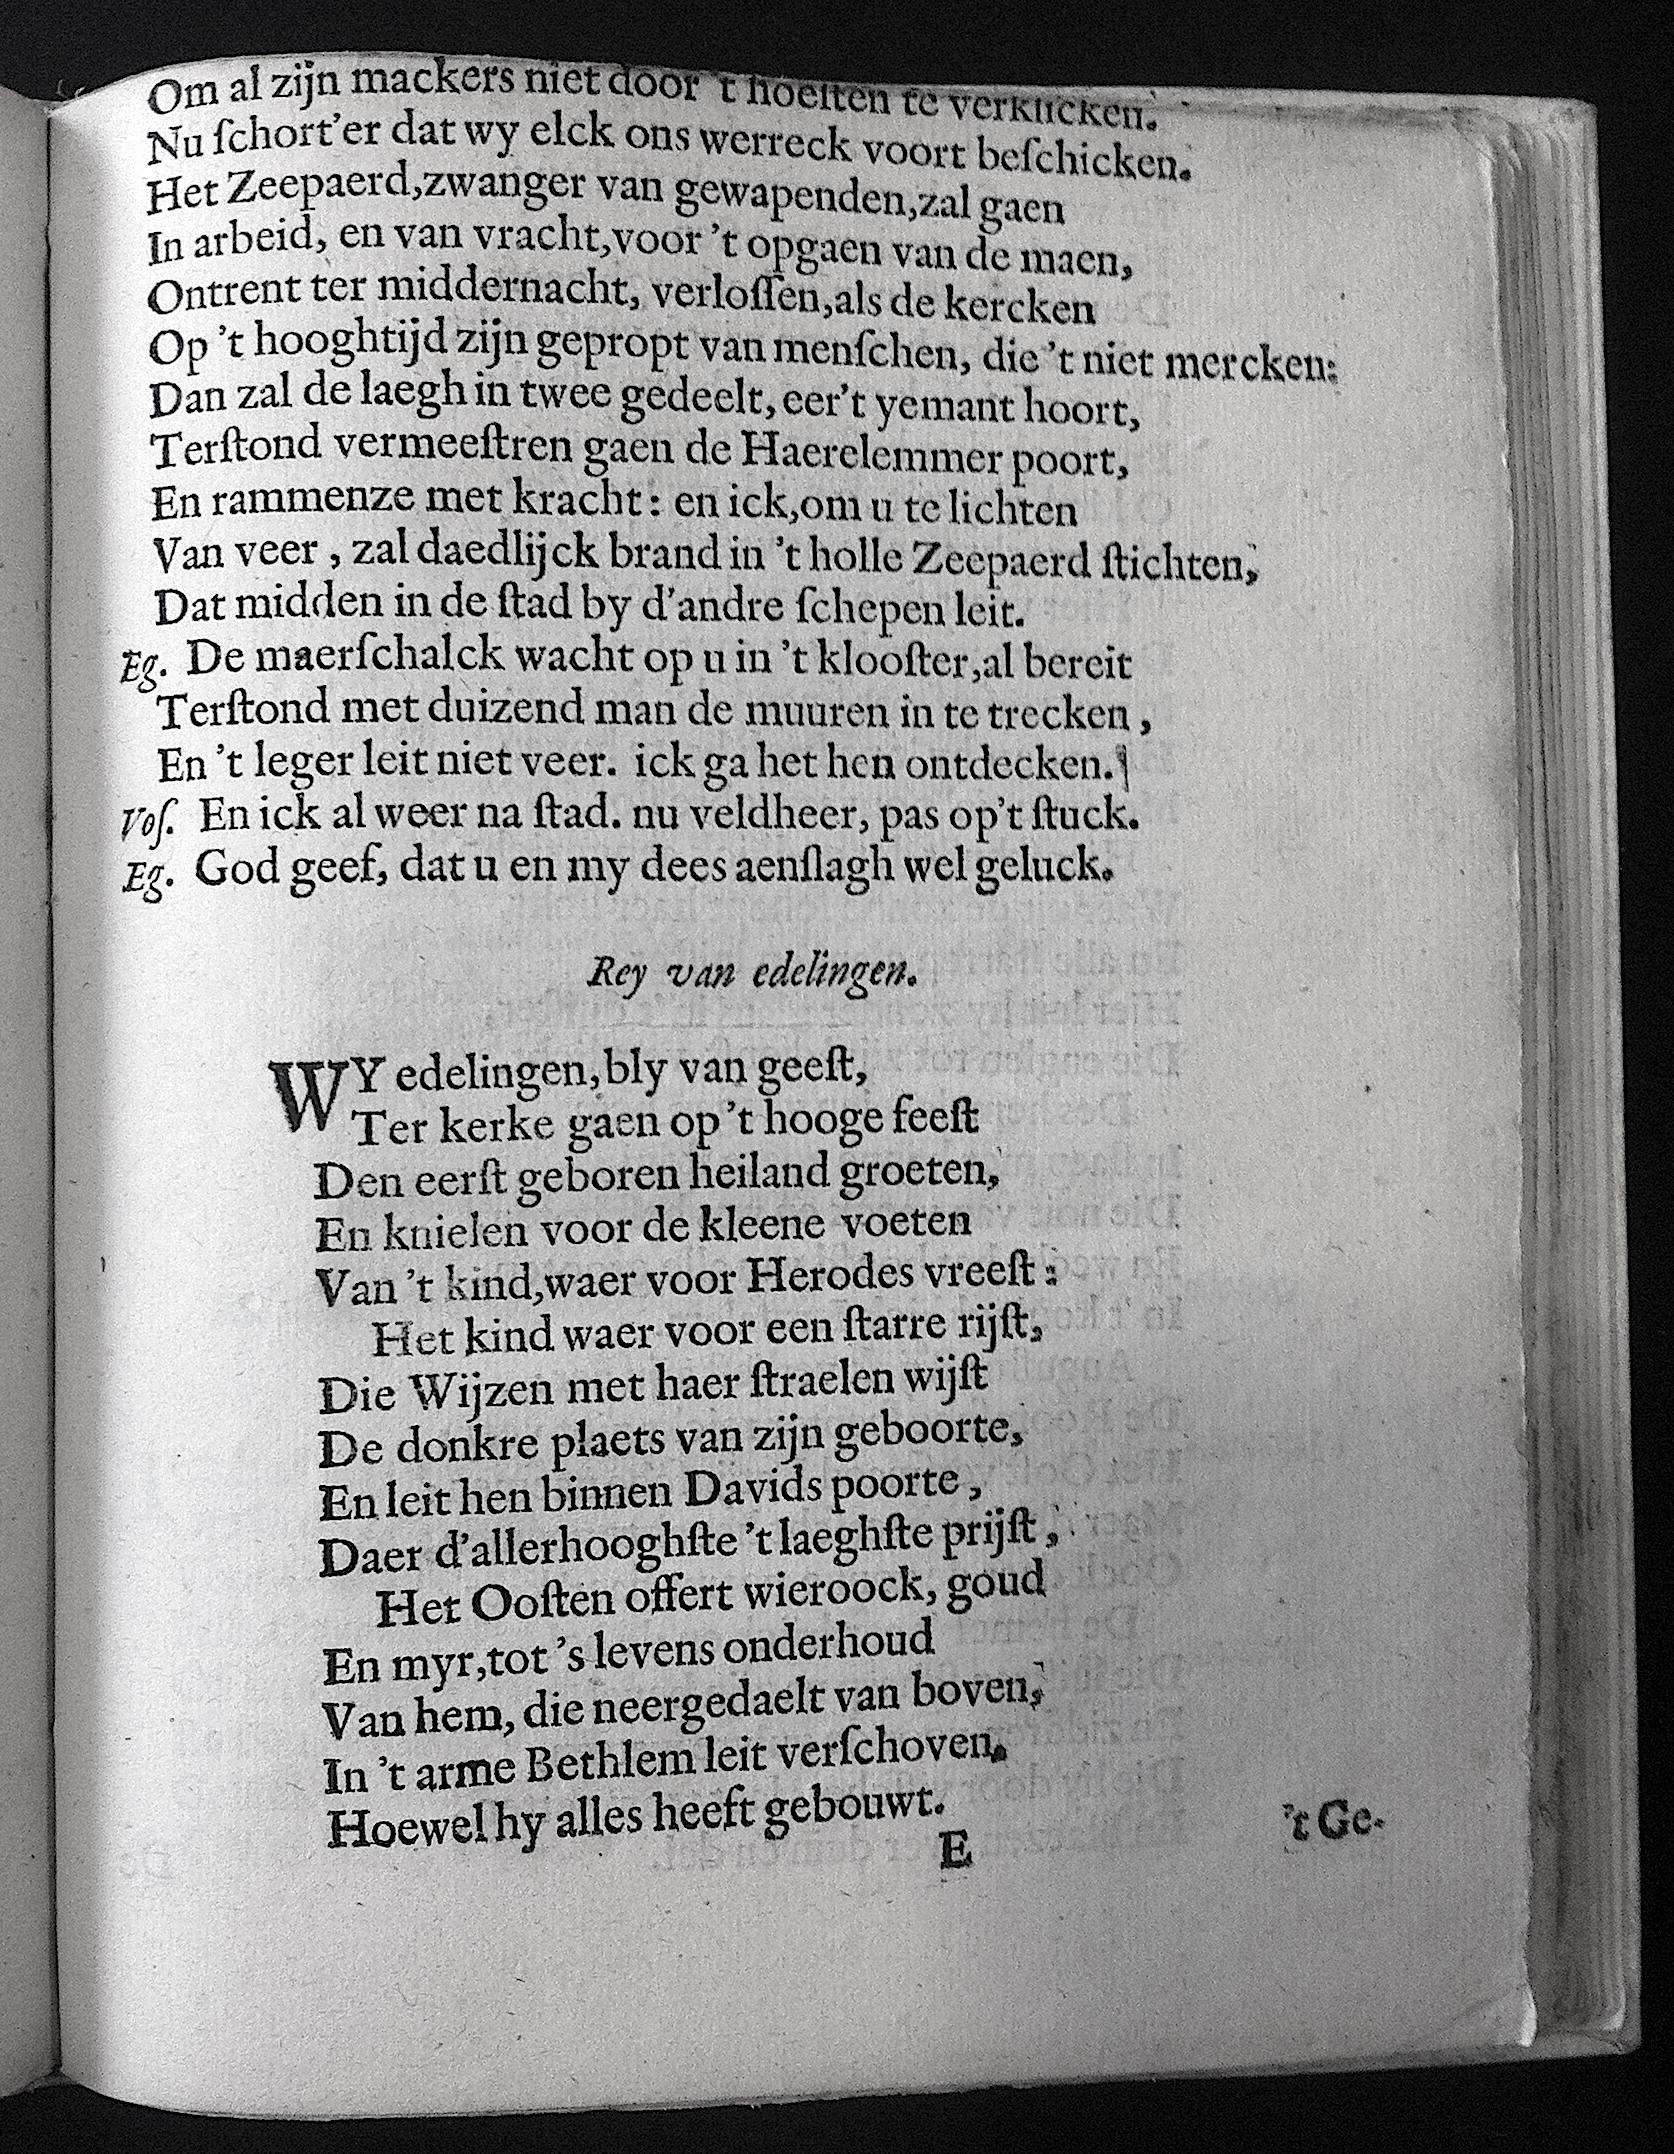 Om al zijn mackers niet door 't hoesten te verklicken.
Nu ſchort'er dat wy elck ons werreck voort beſchicken.
Het Zeepaerd,zwanger van gewapenden,zal gaen
In arbeid, en van vracht,voor 't opgaen van de maen,
Ontrent ter middernacht, verloſſen,als de kercken
Op 't hooghtijd zijn gepropt van menſchen, die 't niet mercken:
Dan zal de laegh in twee gedeelt, eer't yemant hoort,
Terſtond vermeeſtren gaen de Haerelemmer poort,
En rammenze met kracht: en ick,om u te lichten
Van veer, zal daedlijck brand in 't holle Zeepaerd ſtichten,
Dat midden in de ſtad by d'andre ſchepen leit.
Eg. De maerſchalck wacht op u in 't klooſter,al bereit
Terſtond met duizend man de muuren in te trecken,
En 't leger leit niet veer. ick ga het hen ontdecken.
Voſ. En ick al weer na ſtad. nu veldheer, pas op't ſtuck.
Eg. God geef, dat u en my dees aenſlagh wel geluck.
Rey van edelingen.
WY edelingen,bly van geeſt,
Ter kerke gaen op 't hooge feeſt
Den eerſt geboren heiland groeten,
En knielen voor de kleene voeten
Van 't kind,waer voor Herodes vreeſt:
Het kind waer voor een ſtarre rijſt,
Die Wijzen met haer ſtraelen wijſt
De donkre plaets van zijn geboorte,
En leit hen binnen Davids poorte,
Daer d'allerhooghſte 't laeghſte prijſt,
Het Ooſten offert wieroock, goud
En myr,tot 's levens onderhoud
Van hem, die neergedaelt van boven,
In 't arme Bethlem leit verſchoven.
Hoewel hy alles heeft gebouwt.
E
't Ge-